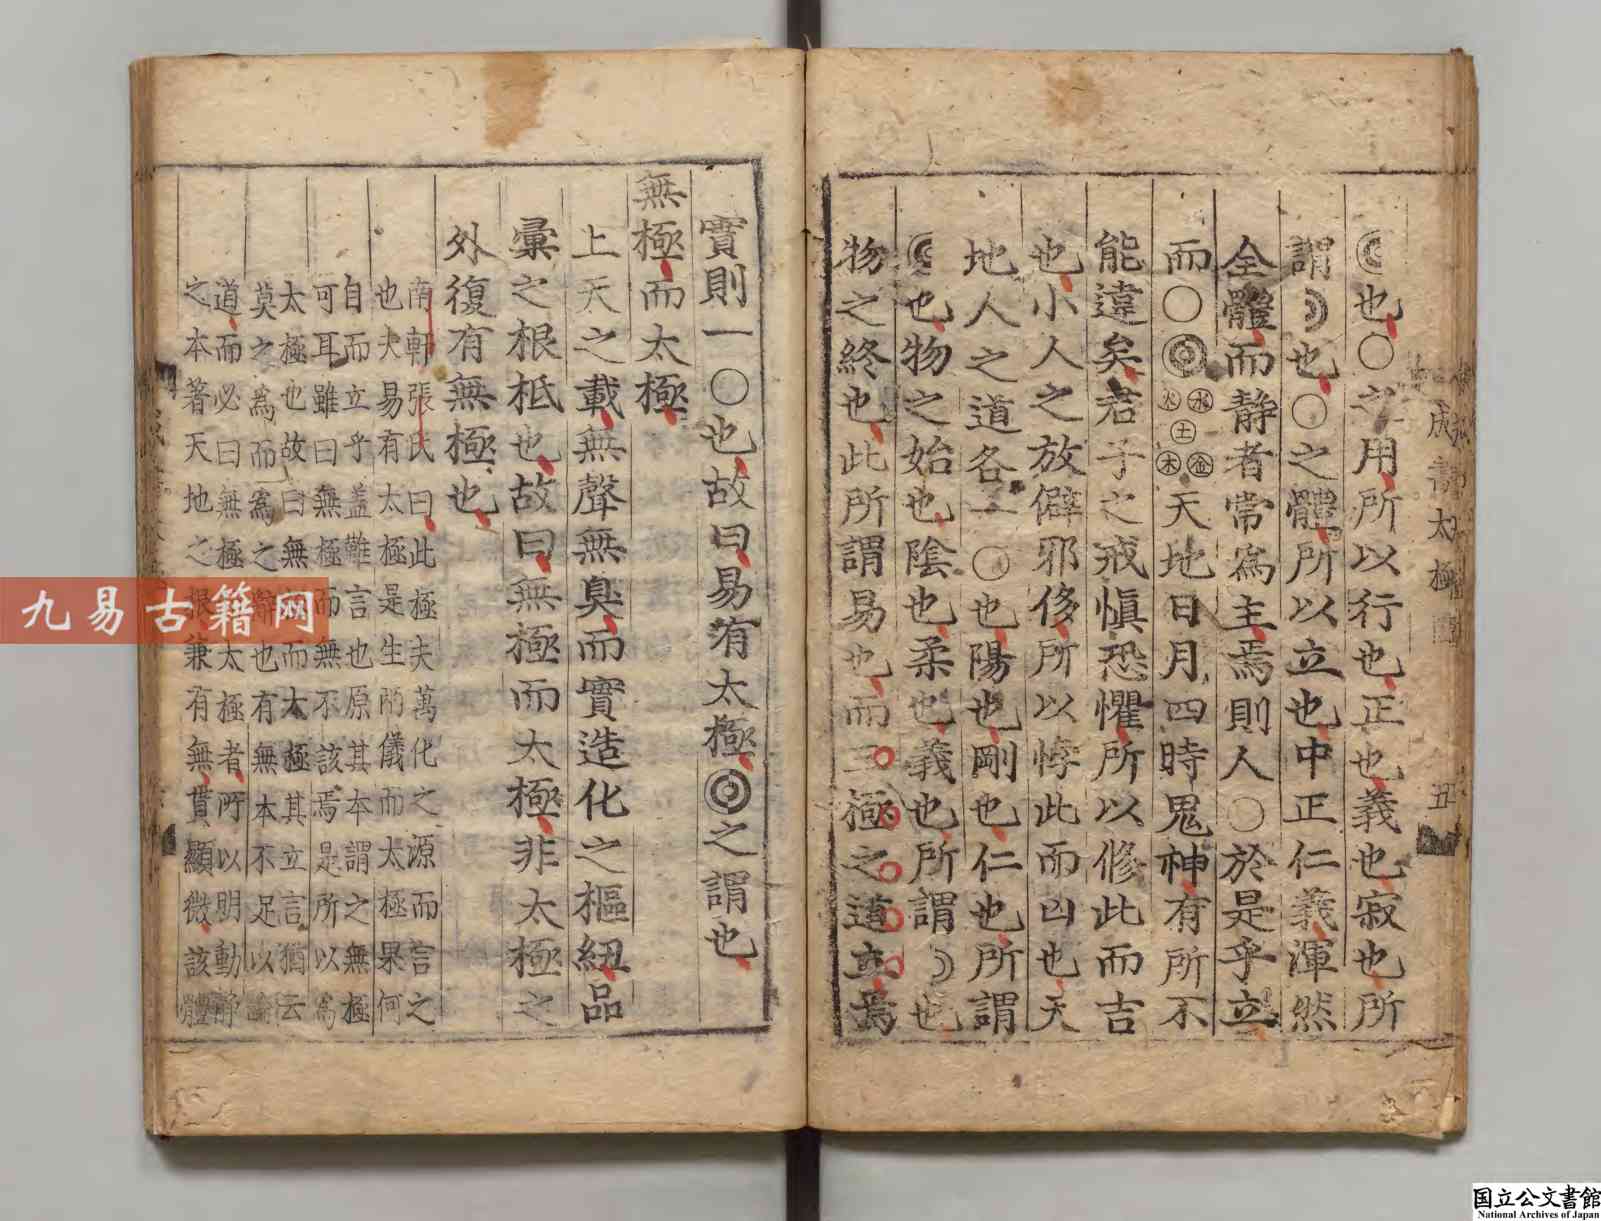 ☾也○之用所以行也正也義也寂也所
謂☽也○之體所以立也中正仁義渾然
全體而静者常爲主焉則人○於是乎立
而○◎火水土木金天地日月四時鬼神有所不
能違矣君子之戒慎恐懼所以修此而吉
也小人之放僻邪侈所以悖此而凶也天
地人之道各一○也陽也剛也仁也所謂
☾也物之始也陰也柔也義也所謂☽也
物之終也此所謂易也而三極之道立焉
太極
五
實則一○也故曰易有太極◎之謂也
無極而太極
上天之載無聲無臭而實造化之樞紐品
彙之根柢也故曰無極而太極非太極之
外復有無極也
南軒張氏曰此極夫萬化之源而言之
也夫易有太極是生兩儀而太極果何
自而立乎蓋難言也原其本謂之無極
可耳雖曰無極而無不該焉是所以爲
太極也故曰無而太極其立言猶云
莫之爲而爲之辭也有無本不足以論
道而必曰無極太極者所以明動静
之本著天地之根兼有無貫顯微該體
九易古籍网
国立公文書館
National Archives of Japan